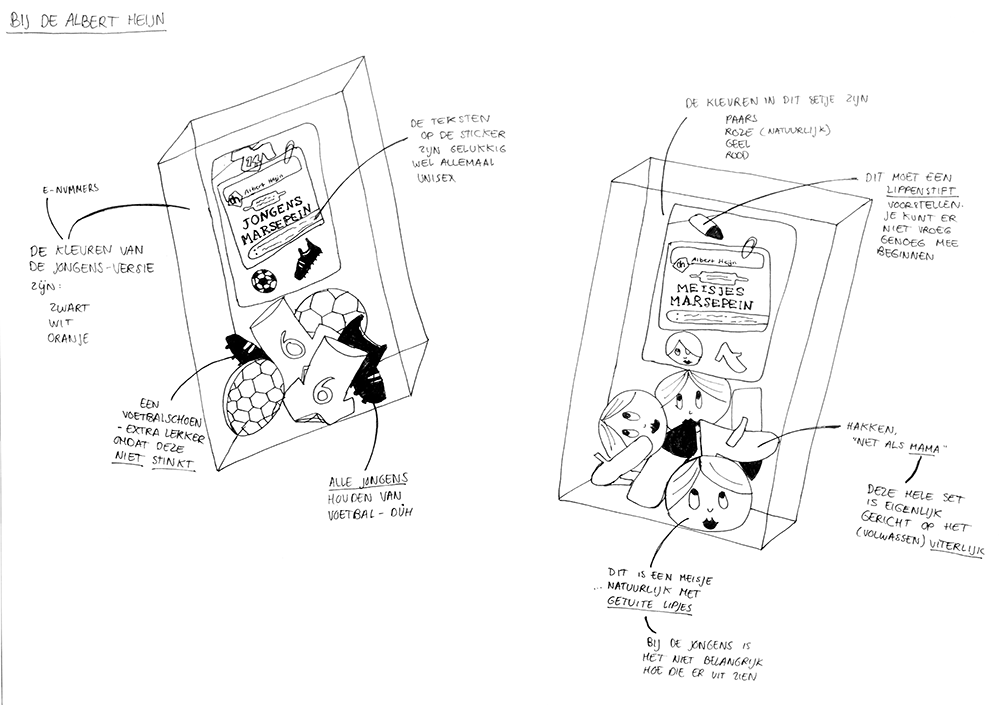 BIJ DE ALBERT HEIJN
DE TEKSTEN
OP DE STICKER
ZIJN GELUKKIG
WEL ALLEMAAL
UNISEX
E-NUMMERS
DE KLEUREN VAN
DE JONGENS-VERSIE
ZIJN:
ZWART
WIT
ORANJE
ah Albert Heijn
JONGENS
MARSEPEIN
6
6
EEN
VOETBALSCHOEN
- EXTRA LEKKER
OMDAT DEZE
NIET STINKT
ALLE JONGENS
HOUDEN VAN
VOETBAL - DÛH
DE KLEUREN IN DIT SETJE ZIJN
PAARS
ROZE (NATUURLIJK)
GEEL
ROOD
DIT MOET EEN
LIPPENSTIFT
VOORSTELLEN.
JE KUNT ER
NIET VROEG
GENOEG MEE
BEGINNEN
ah Albert Heijn
MEISJES
MARSEPEIN
HAKKEN,
"NET ALS MAMA"
DEZE HELE SET
IS EIGENLIJK
GERICHT OP HET
(VOLWASSEN) UITERLIJK
DIT IS EEN MEISJE
... NATUURLIJK MET
GETUITE LIPJES
BIJ DE JONGENS IS
HET NIET BELANGRIJK
HOE DIE ER UIT ZIEN